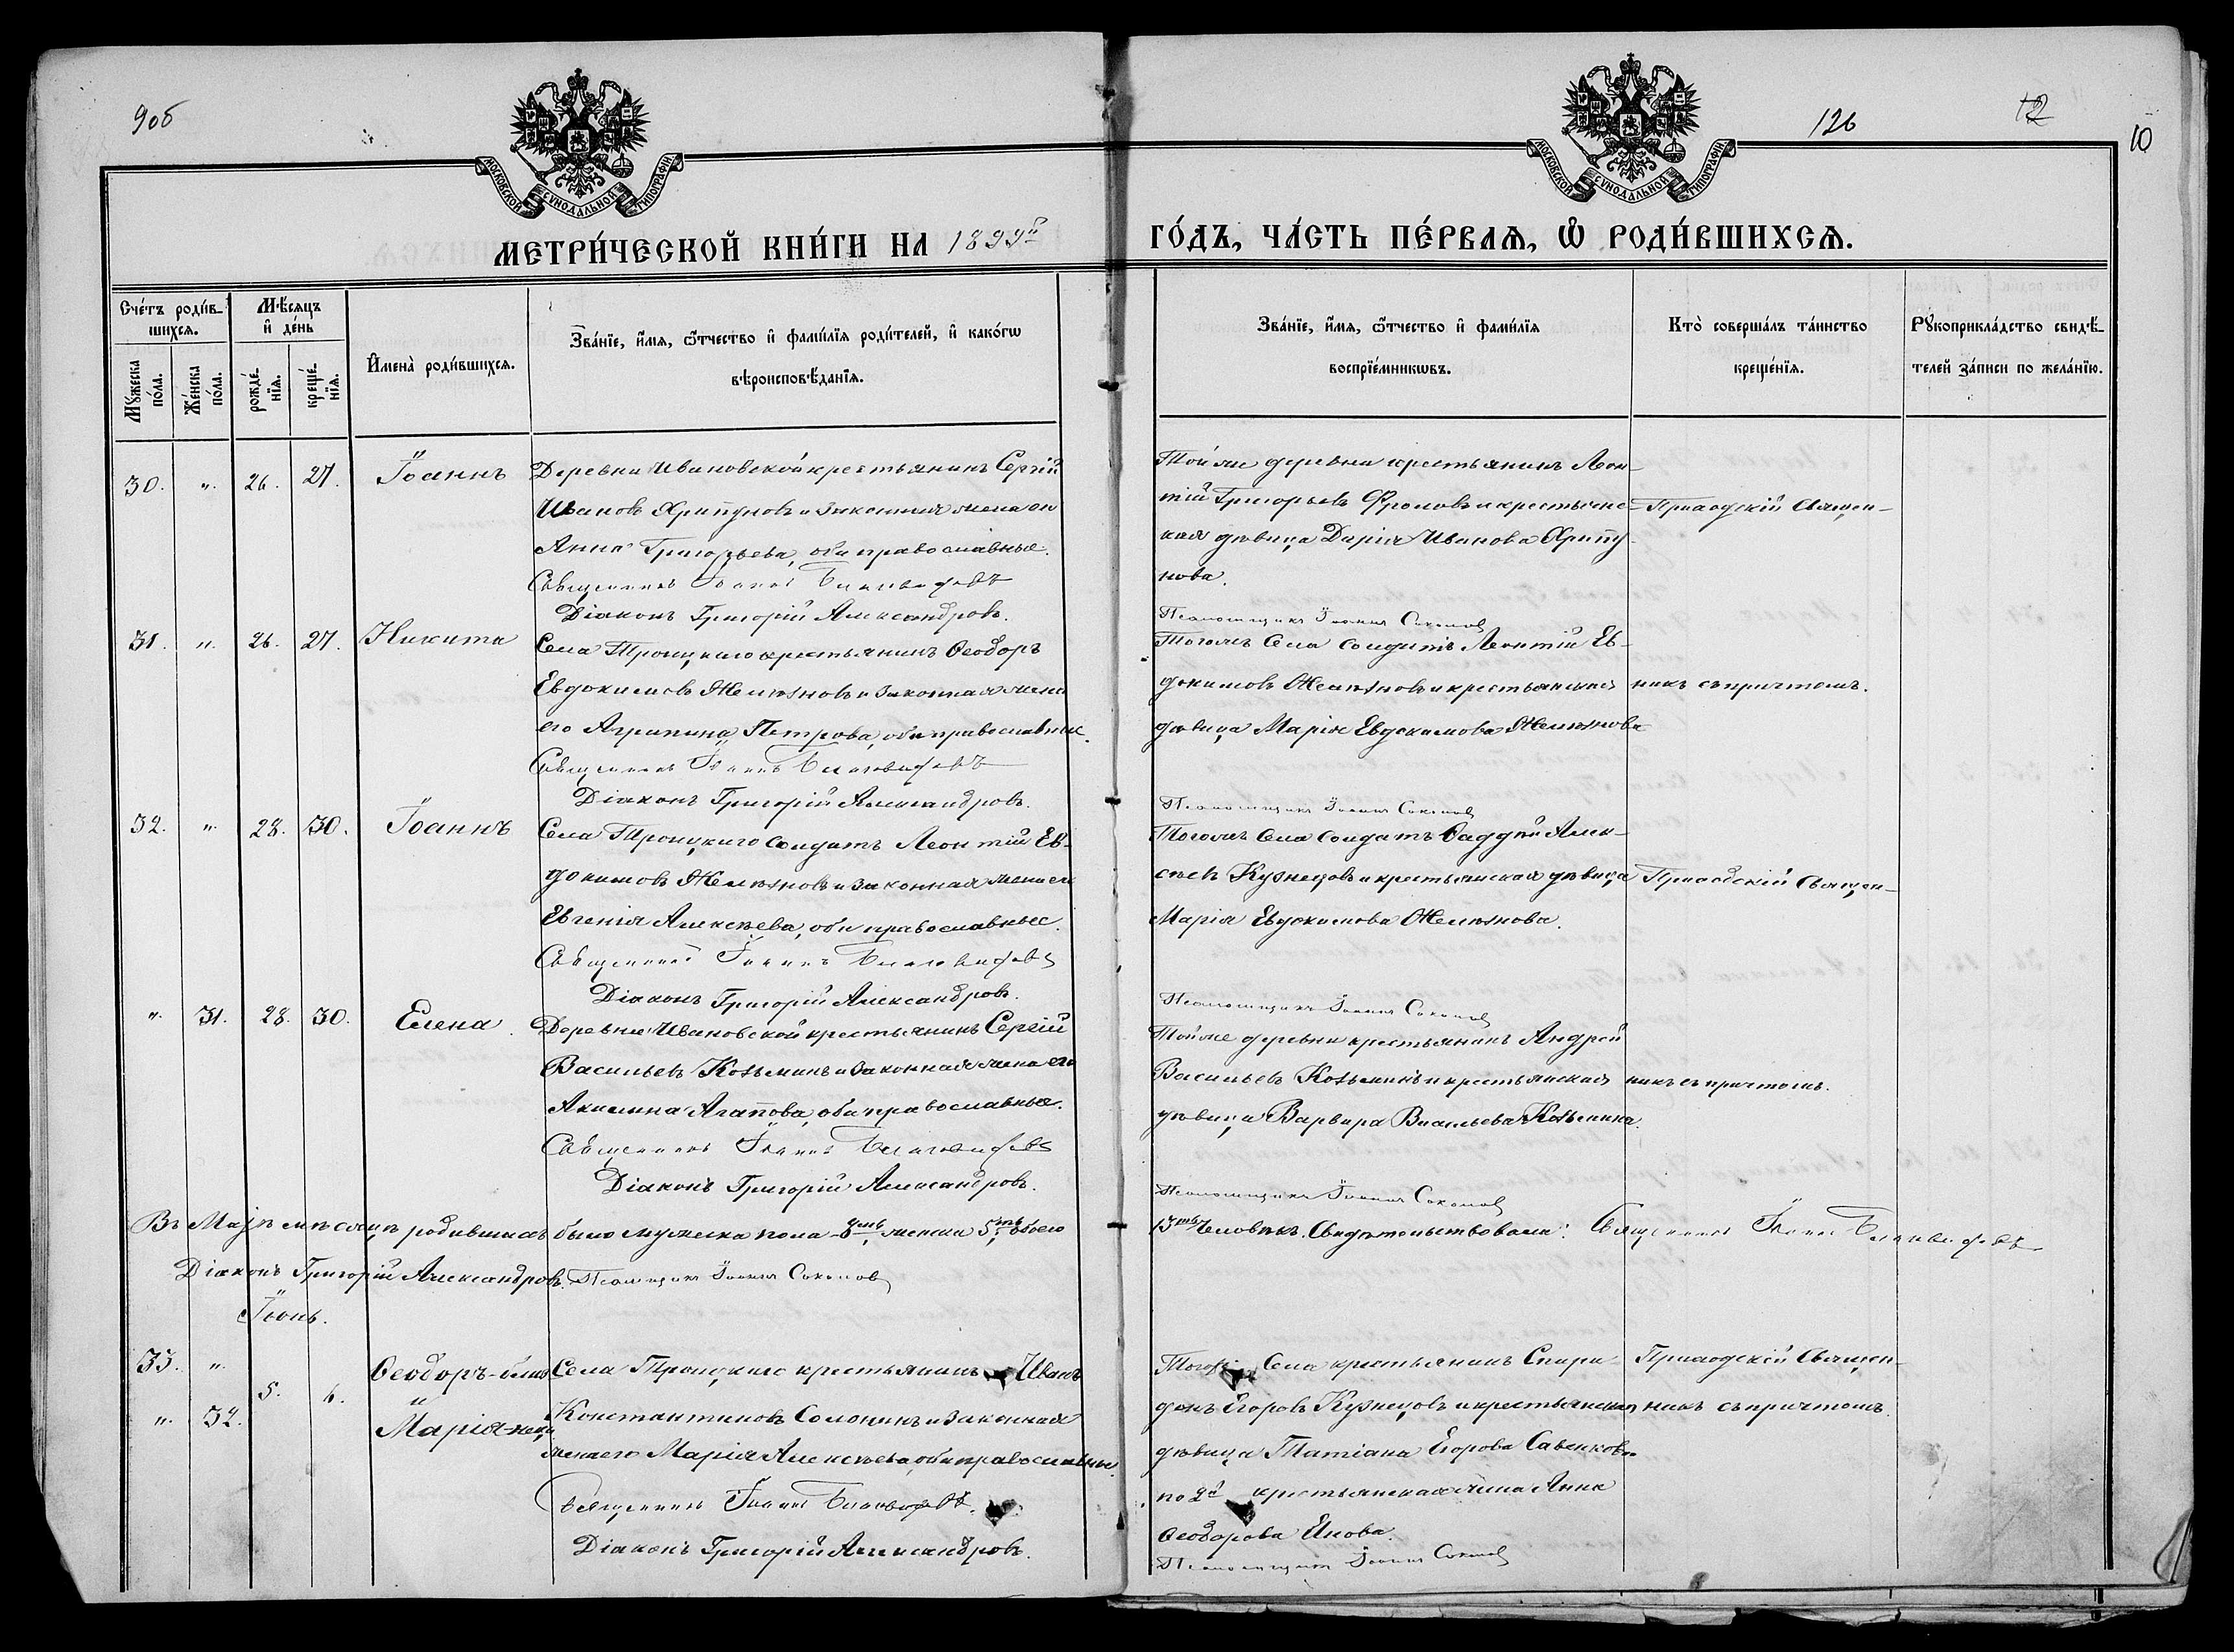 9об
126
12
10
МОСКОВСКОЙ СУНОДАЛЬНОЙ ТИПОГРАФІИ
МОСКОВСКОЙ СУНОДАЛЬНОЙ ТИПОГРАФІИ
МЕТРИ́ЧЕСКОЙ КНИ́ГИ НА 1899й
ГО́ДЪ, ЧА́СТЬ ПЕ́РВАѦ, Ѡ҆ РОДИ́ВШИХСѦ.
Сче́тъ роди́в-
шихсѧ.
Мꙋ́жеска по́ла.
Же́нска по́ла.
Мѣ́сѧцъ и҆ де́нь
рожде́нїѧ.
креще́нїѧ.
И҆мена̀ роди́вшихсѧ.
Зва́нїе, и҆́мѧ, ѻ҆́тчество и҆ фамі́лїѧ роди́телей, и҆ како́гѡ
вѣроисповѣ́данїѧ.
Зва́нїе, и҆́мѧ, ѻ҆́тчество и҆ фамі́лїѧ
воспрїе́мникѡвъ.
Кто̀ соверша́лъ та́инство
креще́нїѧ.
Рꙋкоприкла́дство свидѣ́-
телей за́писи по жела́нїю.
30. „ 26. 27. Іоаннъ Деревни Ивановской крестьянинъ Сергій
Ивановъ Хрипуновъ и законная жена его
Анна Григорьева, оба православные.
Священникъ Іоаннъ
Діаконъ Григорій Александровъ.
Той же деревни крестьянинъ Леон-
тій Григорьевъ Фроловъ и крестьянс-
кая дѣвица Дарія Иванова Хрипу-
нова.
Псаломщикъ Іоаннъ Соколовъ
Приходскій Священ-
31. „ 26. 27. Никита Села Троицкаго крестьянинъ Ѳеодоръ
Евдокимовъ Желѣзновъ и законная жена
его Агрипина Петрова, оба православные.
Священникъ Іоаннъ
Діаконъ Григорій Александровъ.
Тогоже Села солдатъ Леонтій Ев-
докимовъ Желѣзновъ и крестьянская
дѣвица Марія Евдокимова Желѣзнова
Псаломщикъ Іоаннъ Соколовъ
никъ съ причтомъ.
32. „ 28. 30. Іоаннъ Села Троицкаго солдатъ Леонтій Ев-
докимовъ Желѣзновъ и законная жена его
Евгенія Алексѣева, оба православные.
Священникъ Іоаннъ
Діаконъ Григорій Александровъ.
Тогоже Села солдатъ Ѳаддей Алек-
сѣевъ Кузнецовъ и крестьянская дѣвица
Марія Евдокимова Желѣзнова.
Псаломщикъ Іоаннъ Соколовъ
Приходскій Священ-
„ 31. 28. 30. Елена Деревни Ивановской крестьянинъ Сергій
Васильевъ Козьминъ и законная жена его
Акилина Агапова, оба православные.
Священникъ Іоаннъ
Діаконъ Григорій Александровъ.
Той же деревни крестьянинъ Андрей
Васильевъ Козьминъ и крестьянская
дѣвица Варвара Васильева Козьмина.
Псаломщикъ Іоаннъ Соколовъ
никъ съ причтомъ.
Въ Маѣ мѣсяцѣ родившихся было мужеска пола 8мь, женска 5ть, обоего
13ть человѣкъ. Свидѣтельствовали: Священникъ Іоаннъ
Діаконъ Григорій Александровъ. Псаломщикъ Іоаннъ Соколовъ
Іюнь.
33. „ 5. 6. Ѳеодоръ
„ 32. и Марія
Села Троицкаго крестьянинъ Иванъ
Константиновъ Солонинъ и законная
жена его Марія Алексѣева, оба православные.
Священникъ Іоаннъ
Діаконъ Григорій Александровъ.
Тогоже Села крестьянинъ Спири-
донъ Егоровъ Кузнецовъ и крестьянская
дѣвица Татіана Егорова Савенкова
по 2й крестьянская жена Анна
Ѳеодорова
Псаломщикъ Іоаннъ Соколовъ
Приходскій Священ-
никъ съ причтомъ.